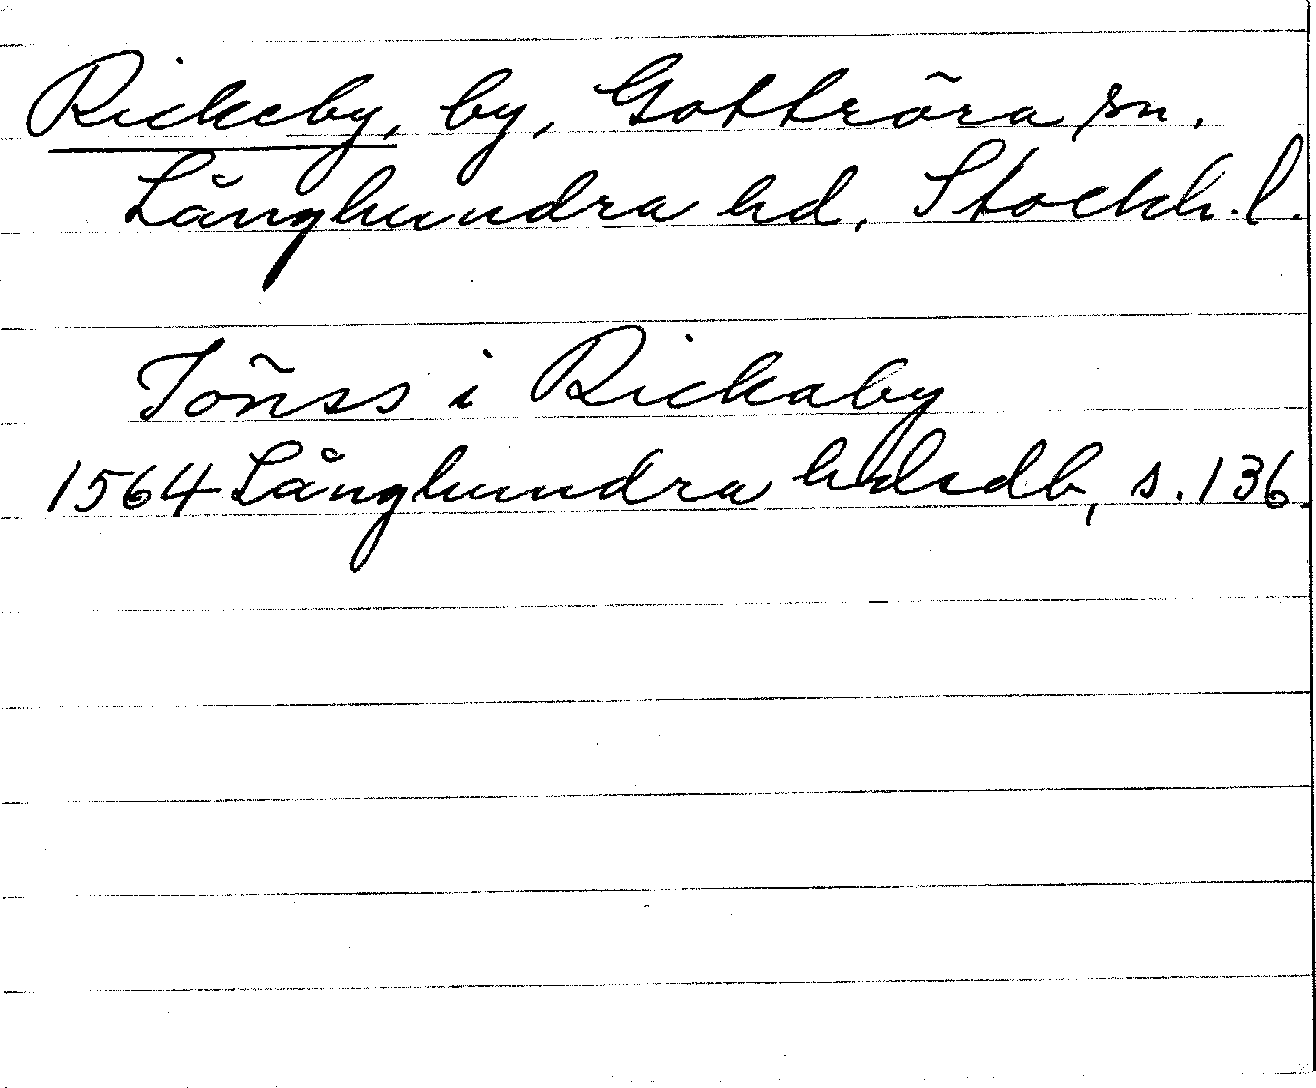 Rickeby, by, Gottröra sn.
Långhundra hd, Stockh. l.
Jon̄ss i Rickaby
1564 Långhundra hdsdb, s. 136.